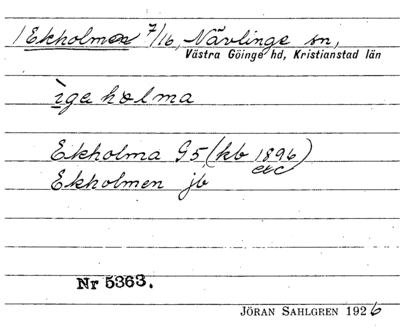 1 Ekholmen 7/16, Nävlinge sn,
Västra Göinge hd, Kristianstad län
ìgahælma
Ekholma G5 (kb 1896)
etc
Ekholmen jb
Nr 5363.
JÖRAN SAHLGREN 1926